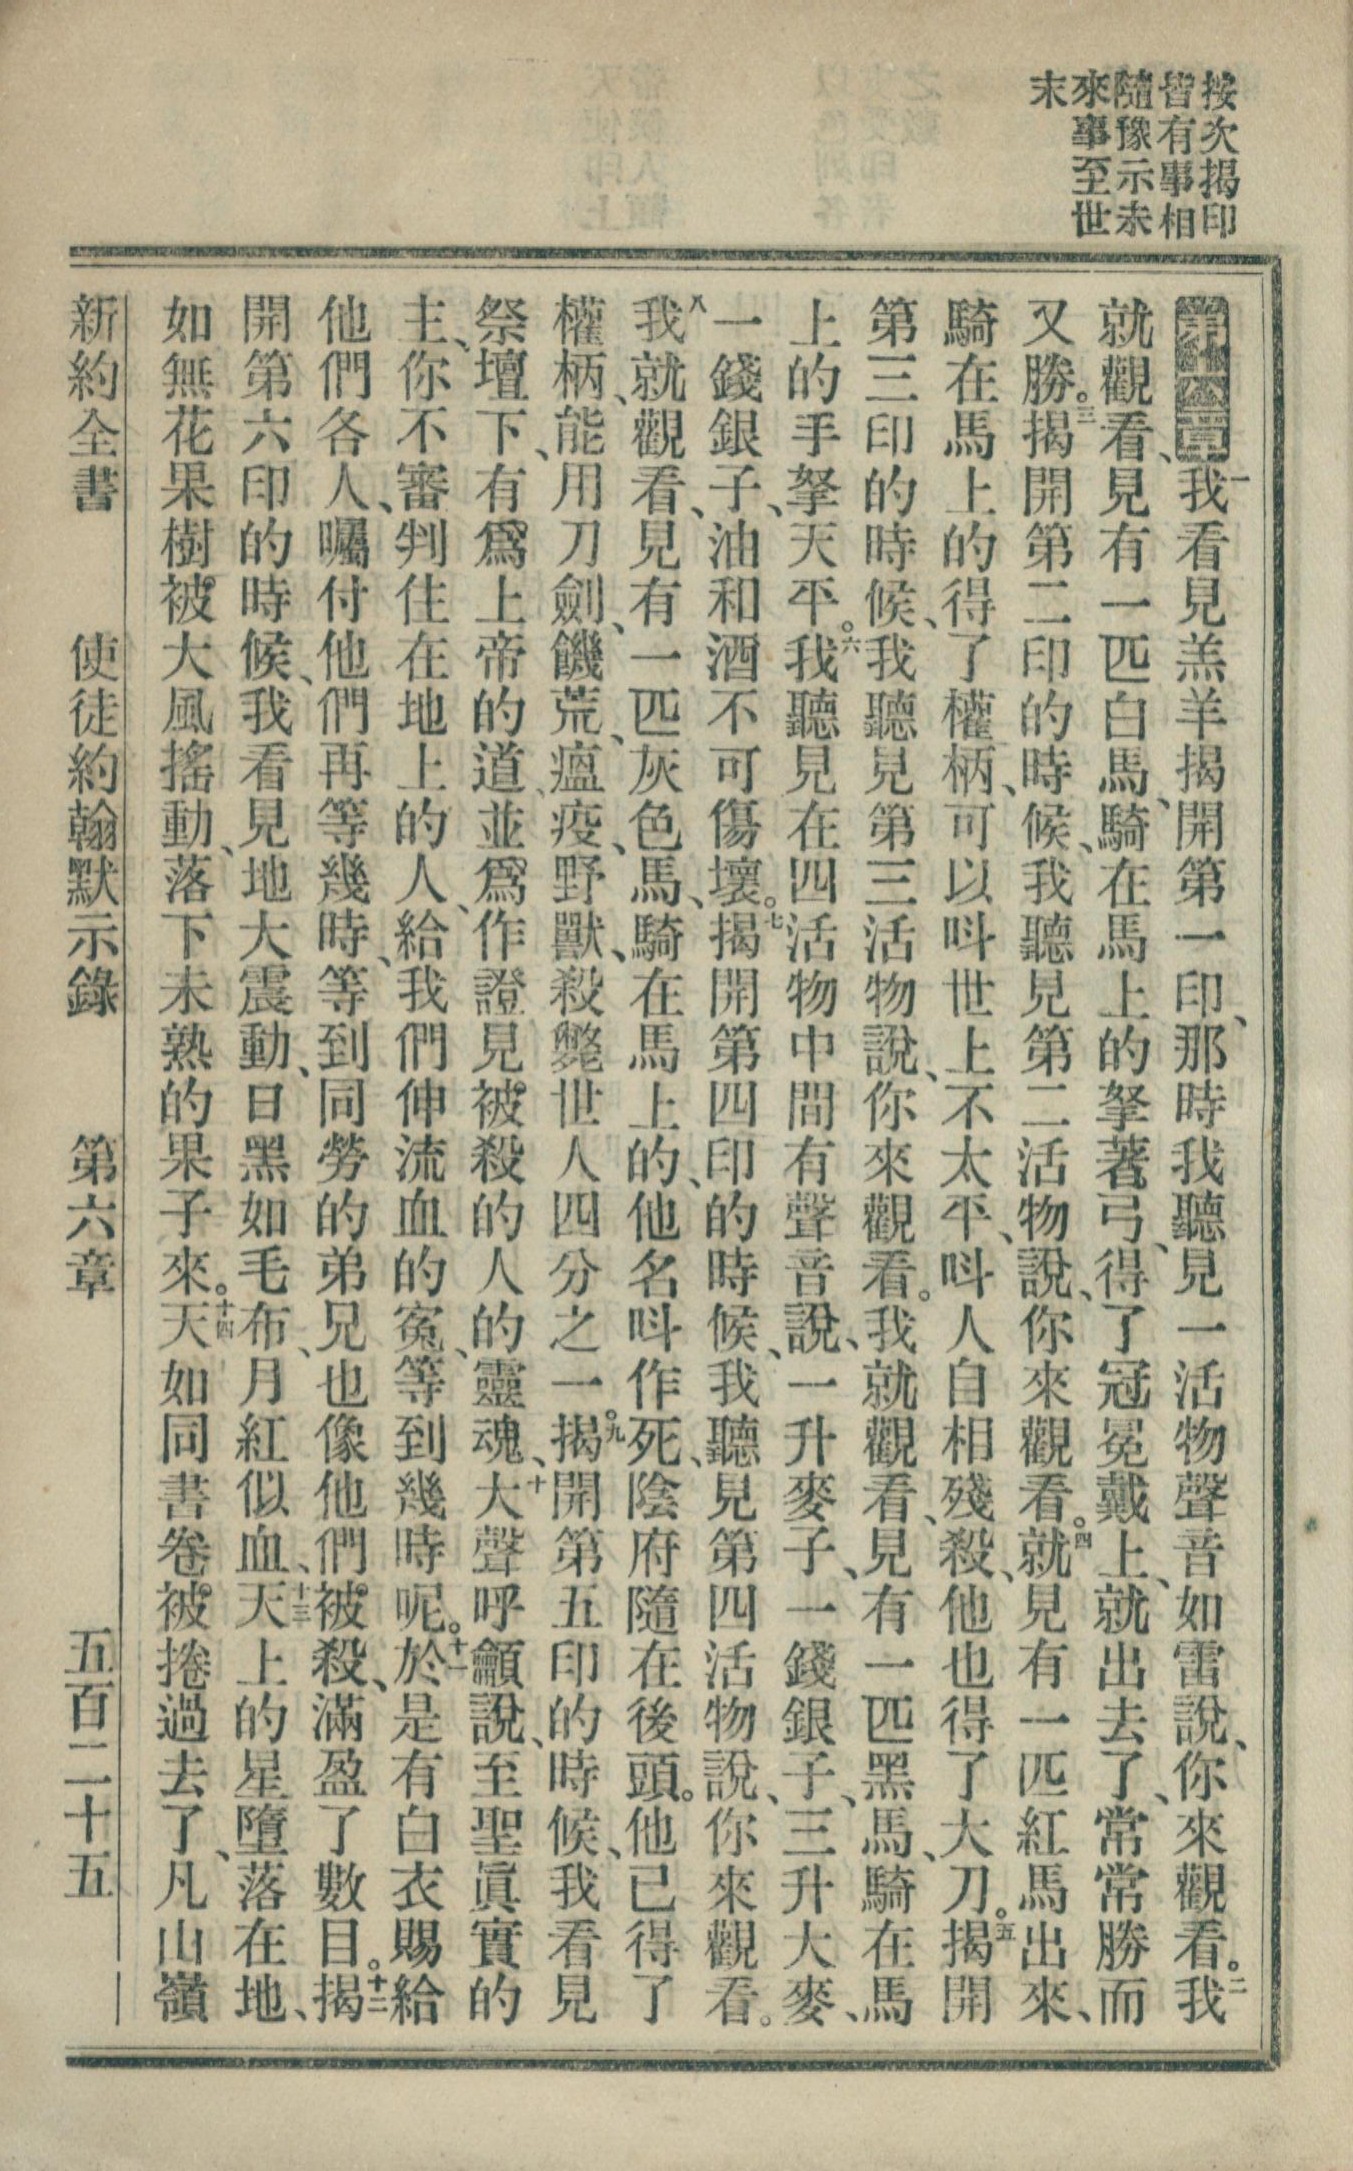 按次揭印
皆有事相
隨豫示未
來事至世
末
第六章一我看見羔羊揭開第一印、那時我聽見一活物聲音如雷說、你來觀看。二我
就觀看、見有一匹白馬、騎在馬上的拏著弓、得了冠冕戴上、就出去了、常常勝而
又勝。三揭開第二印的時候、我聽見第二活物說、你來觀看。四就見有一匹紅馬出來、
騎在馬上的得了權柄、可以呌世上不太平、呌人自相殘殺、他也得了大刀。五揭開
第三印的時候、我聽見第三活物說、你來觀看。我就觀看、見有一匹黑馬、騎在馬
上的手拏天平。六我聽見在四活物中間有聲音說、一升麥子、一錢銀子、三升大麥、
一錢銀子、油和酒不可傷壞。七揭開第四印的時候、我聽見第四活物說、你來觀看。
八我就觀看、見有一匹灰色馬、騎在馬上的、他名呌作死、陰府隨在後頭。他已得了
權柄、能用刀劍、饑荒、瘟疫、野獸、殺斃世人四分之一。九揭開第五印的時候、我看見
祭壇下、有爲上帝的道、並爲作證見被殺的人的靈魂、十大聲呼籲說、至聖眞實的
主、你不審判住在地上的人、給我們伸流血的寃、等到幾時呢。十一於是有白衣賜給
他們各人、囑付他們再等幾時、等到同勞的弟兄也像他們被殺、滿盈了數目。十二揭
開第六印的時候、我看見地大震動、日黑如毛布、月紅似血、十三天上的星墮落在地、
如無花果樹被大風搖動、落下未熟的果子來。十四天如同書卷被捲過去了、凡山嶺
新約全書　使徒約翰默示錄　第六章　五百二十五